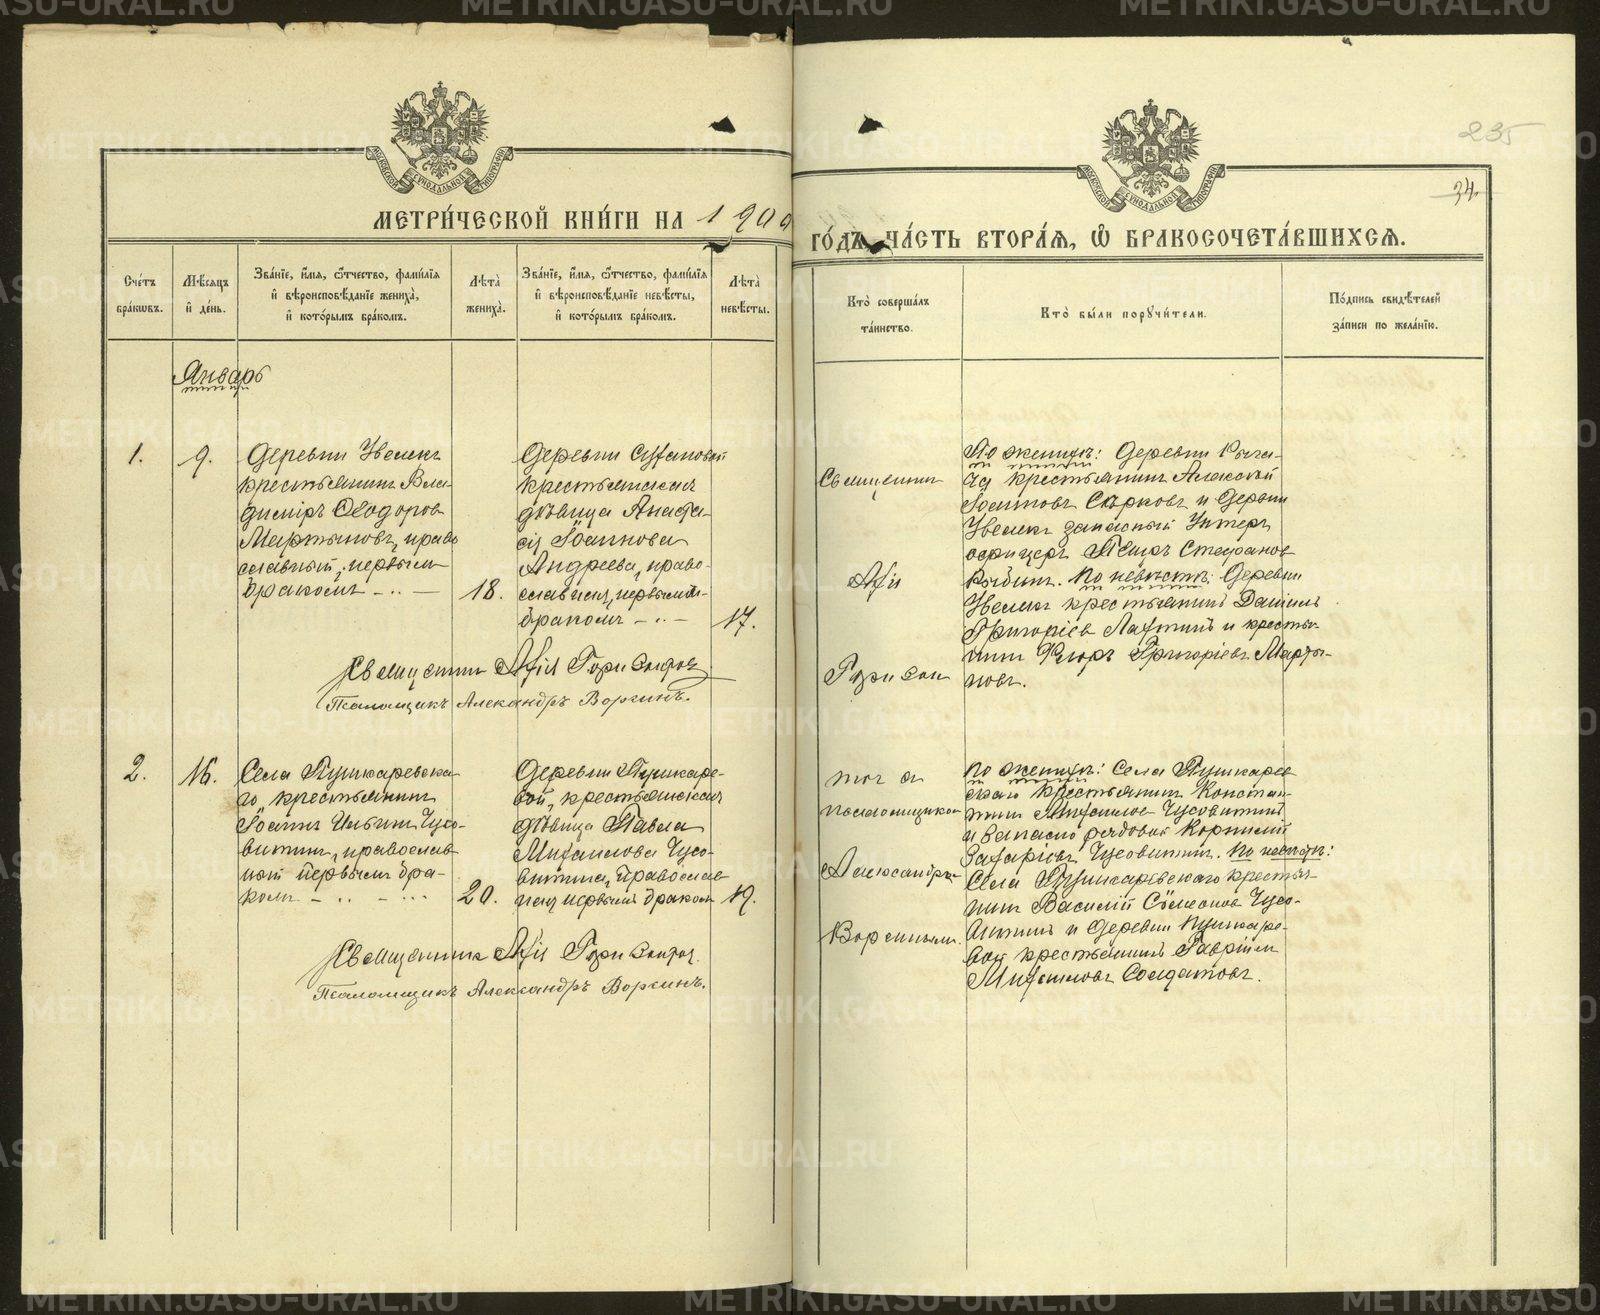 METRIKI.GASO-URAL.RU
235
34.
МОСКОВСКОЙ СѴНОДАЛЬНОЙ ТИПОГРАФІИ
МОСКОВСКОЙ СѴНОДАЛЬНОЙ ТИПОГРАФІИ
МЕТРИ́ЧЕСКОЙ КНИ́ГИ НА 1900
ГО́ДЪ, ЧА́СТЬ ВТОРА́Я, Ѡ҆ БРАКОСОЧЕТА́ВШИХСЯ.
Сче́тъ
бра́кѡвъ.
Мѣ́сяцъ
и҆ де́нь.
Зва́нїе, и҆́мя, ѻ҆́тчество, фами́лїя
и҆ вѣроисповѣ́данїе жениха̀,
и҆ кото́рымъ бра́комъ.
Лѣ́та
жениха̀.
Зва́нїе, и҆́мя, ѻ҆́тчество, фами́лїя
и҆ вѣроисповѣ́данїе невѣ́сты,
и҆ кото́рымъ бра́комъ.
Лѣ́та
невѣ́сты.
Кто̀ соверша́лъ
та́инство.
Кто̀ бы́ли пору́чи́тели.
По́дпись свидѣ́телей
за́писи по жела́нїю.
Январь
1.
9.
Деревни
крестьянинъ Вла-
димiръ Ѳеодоровъ
Мартыновъ, право
славный, первымъ
бракомъ
18.
Деревни
крестьянская
дѣвица Анаста-
сiя Iоаннова
Андреева, право-
славная, первымъ
бракомъ
17.
Священникъ
По женихѣ: Деревни
крестьянинъ Алексѣй
и Деревни
запасный Унтеръ
офицеръ Стефановъ
По невѣстѣ: Деревни
крестьянинъ Данiилъ
Григорiевъ и кресть-
Григорiевъ Марты-
новъ.
Священникъ
Псаломщикъ Александръ Ворсинъ.
2.
16.
Села Пушкаревска-
го, крестьянинъ
Iоаннъ Чусо-
витинъ, православ-
ный первымъ бра-
комъ
20.
Деревни Пушкаре-
вой, крестьянская
дѣвица Павла
Михаилова Чусо-
витина, православ-
ная первымъ бракомъ
19.
тотъ съ
псаломщикомъ
Александромъ
Ворсинымъ.
По женихѣ: Села Пушкарев
скаго крестьянинъ Констан-
тинъ Михаиловъ Чусовитинъ
и рядовой Корнилiй
Захарiевъ Чусовитинъ. По невѣстѣ:
Села Пушкаревскаго крестья-
нинъ Василiй Симеоновъ Чусо-
витинъ и Деревни Пушкаре-
вой крестьянинъ Гаврiилъ
Михаиловъ Солдатовъ.
Священникъ
Псаломщикъ Александръ Ворсинъ.